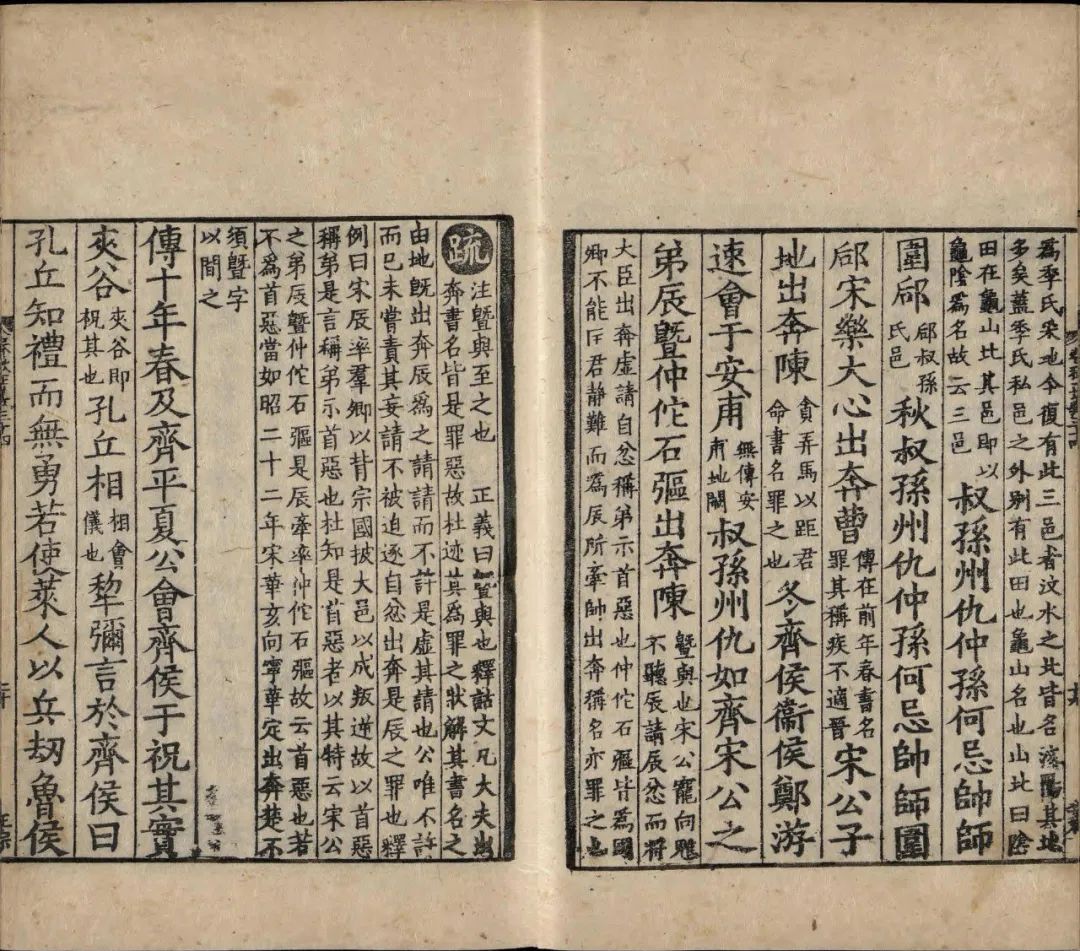 為季氏采地今復有此三邑者汶水之北皆名汶陽其地
多矣蓋季氏私邑之外別有此田也龜山名也山北曰陰
田在龜山北其邑即以龜陰為名故云三邑叔孫州仇仲孫何忌帥師
圍郈郈叔孫氏邑秋叔孫州仇仲孫何忌帥師圍
郈宋樂大心出奔曹傳在前年春書名罪其稱疾不適晉宋公子
地出奔陳貪弄馬以距君命書名罪之也冬齊侯衞侯鄭游
速會于安甫無傳安甫地闕叔孫州仇如齊宋公之
弟辰暨仲佗石彄出奔陳暨與也宋公寵向魋不聽辰請辰忿而將
大臣出奔虛請自忿稱弟示首惡也仲佗石彄皆為國
卿不能匡君靜難而為辰所牽帥出奔稱名亦罪之也
疏注暨與至之也 正義曰暨與也釋詁文凡大夫出
奔書名皆是罪惡故杜迹其為罪之狀解其書名之
由地旣出奔辰為之請請而不許是虛其請也公唯不許
而已未嘗責其妄請不被迫逐自忿出奔是辰之罪也釋
例曰宋辰率羣卿以背宗國披大邑以成叛逆故以首惡
稱弟是言稱弟示首惡也杜知是首惡者以其特云宋公
之弟辰暨仲佗石彄是辰牽率仲佗石彄故云首惡也若
不為首惡當如昭二十二年宋華亥向寧華定出奔楚不
須暨字
以間之
傳十年春及齊平夏公會齊侯于祝其實
夾谷夾谷即祝其也孔丘相相會儀也犂彌言於齊侯曰
孔丘知禮而無勇若使萊人以兵刼魯侯